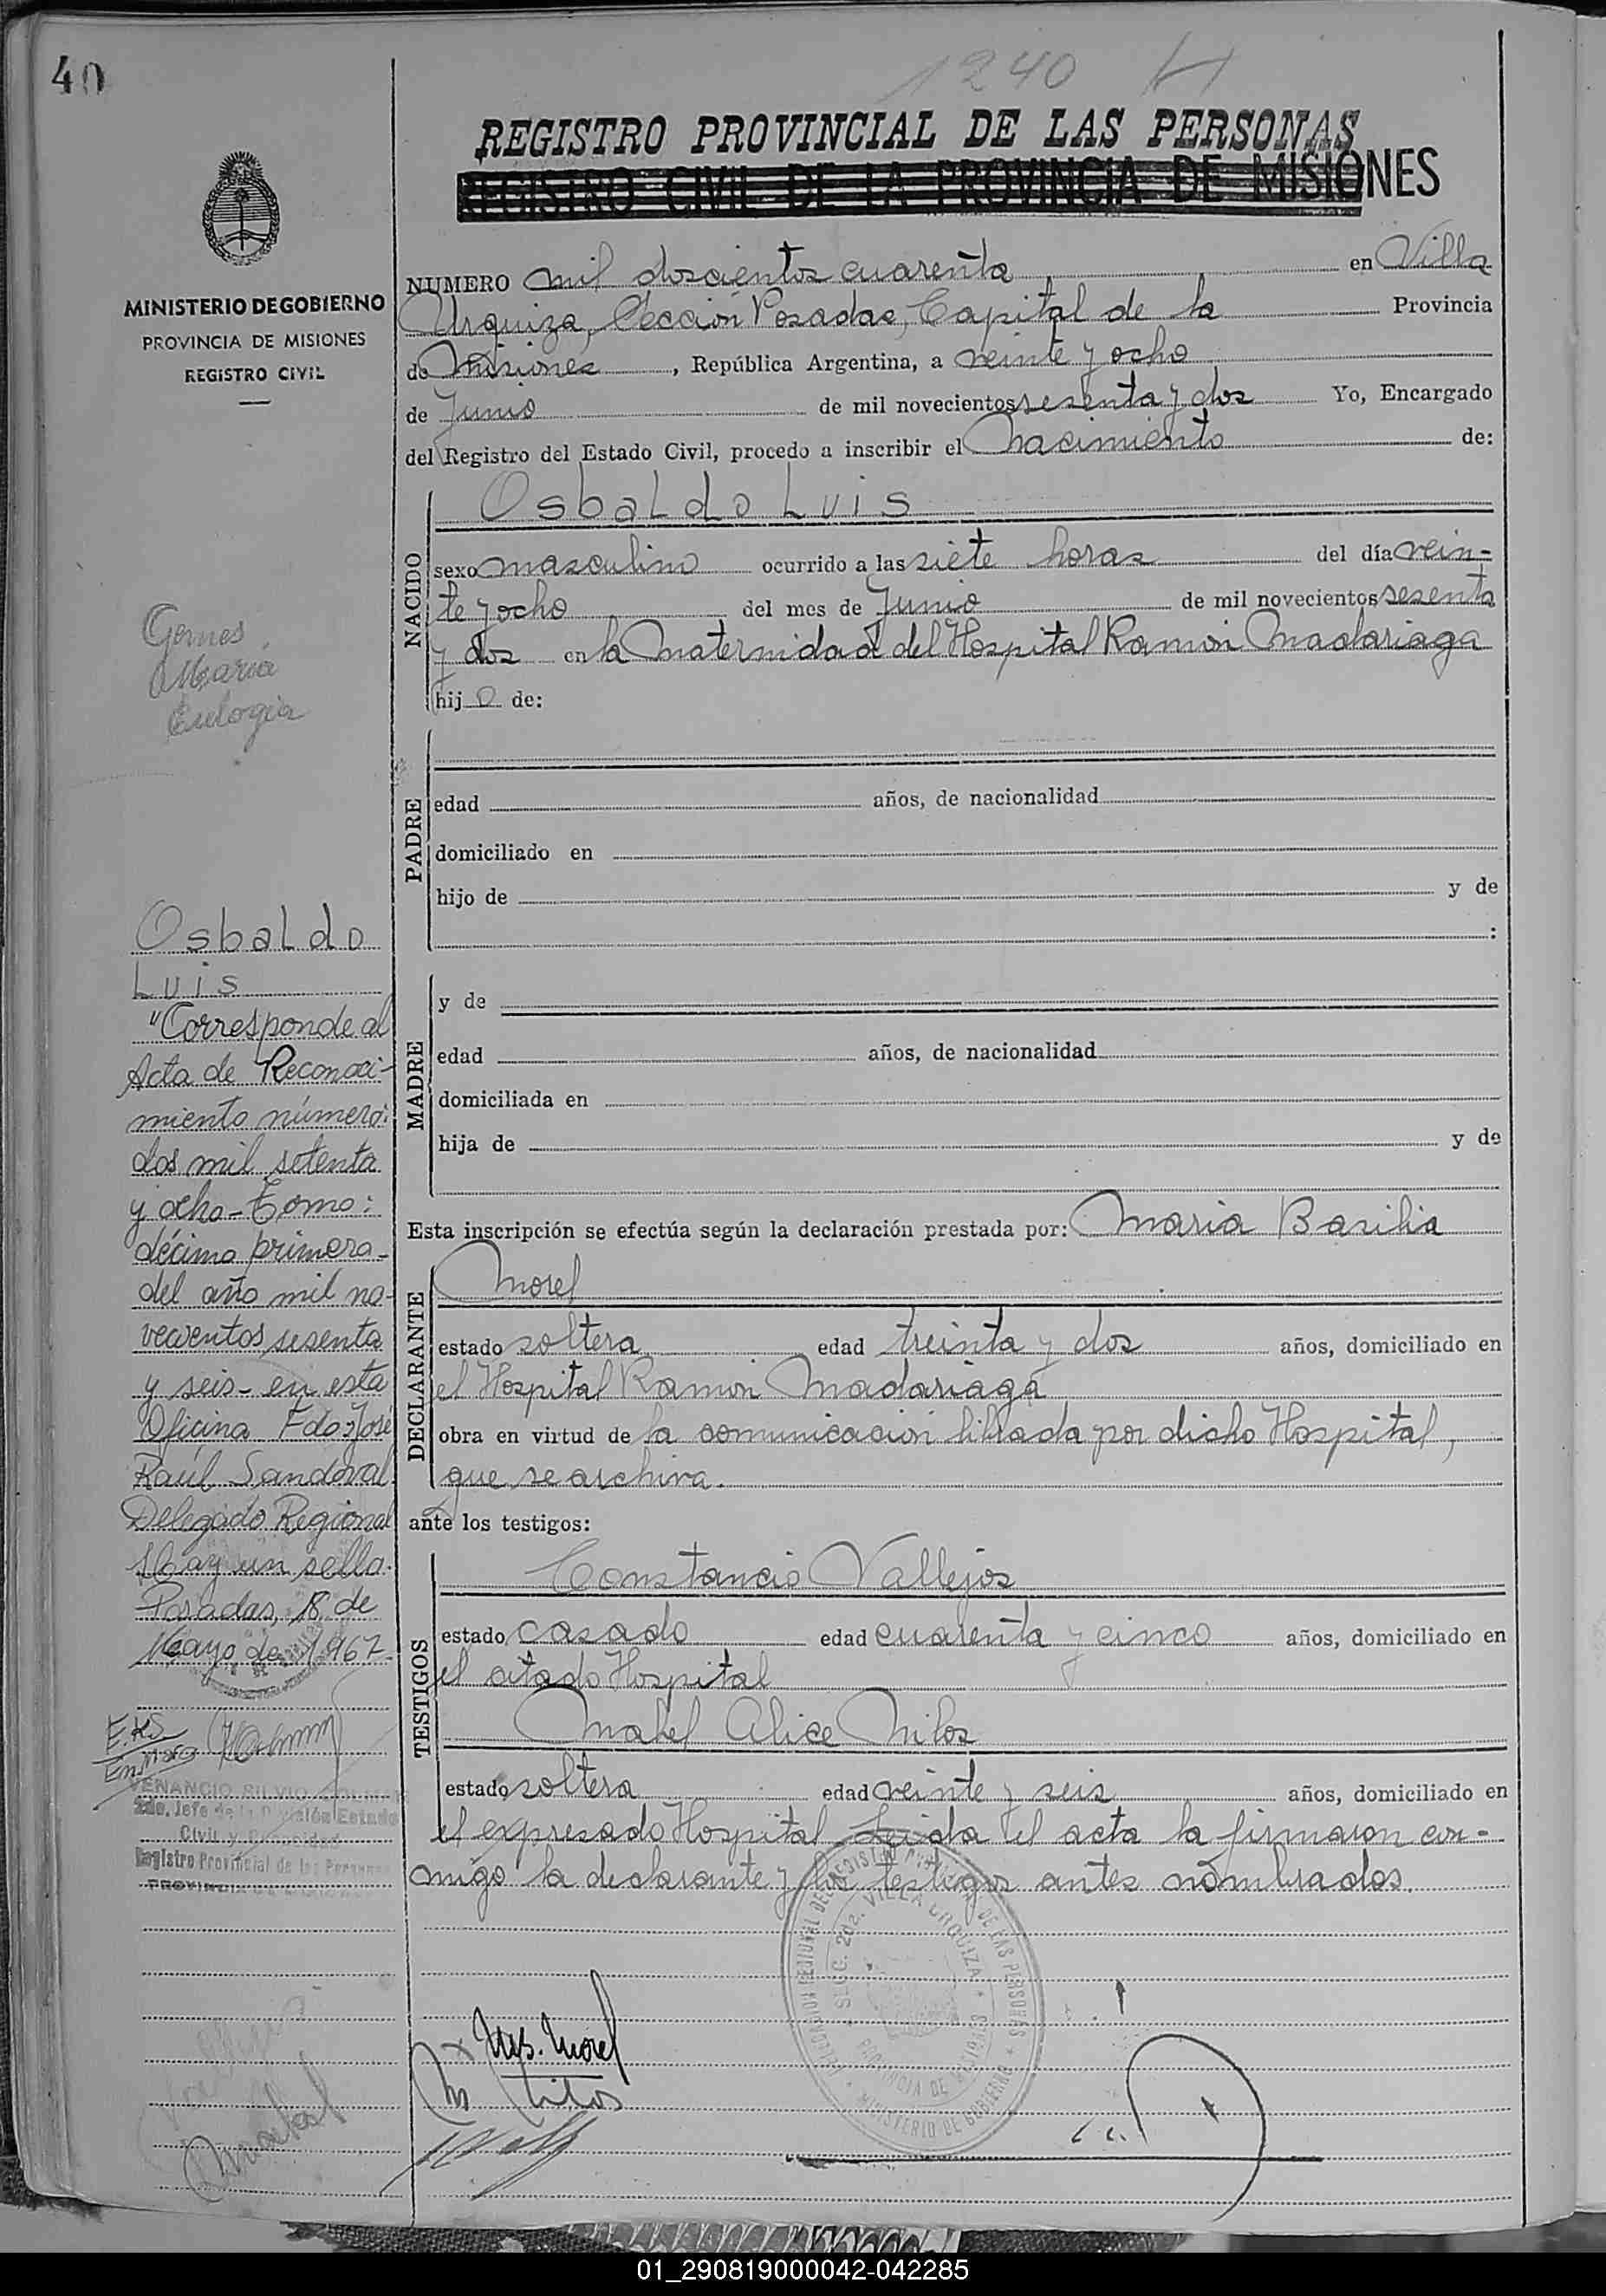 40
1240 H
REGISTRO PROVINCIAL DE LAS PERSONAS
REGISTRO CIVIL DE LA PROVINCIA DE MISIONES
MINISTERIO DE GOBIERNO
PROVINCIA DE MISIONES
REGISTRO CIVIL
NUMERO mil doscientos cuarenta en Villa
Urquiza, Sección Posadas, Capital de la Provincia
de Misiones, República Argentina, a veinte y ocho
de Junio de mil novecientos sesenta y dos Yo, Encargado
del Registro del Estado Civil, procedo a inscribir el Nacimiento de:
NACIDO
Osbaldo Luis
sexo masculino ocurrido a las siete horas del día vein-
te y ocho del mes de Junio de mil novecientos sesenta
y dos en la Maternidad del Hospital Ramón Madariaga
hijo de:
PADRE
edad años, de nacionalidad
domiciliado en
hijo de y de
:
MADRE
y de
edad años, de nacionalidad
domiciliada en
hija de y de
Esta inscripción se efectúa según la declaración prestada por: Maria Basilia
DECLARANTE
Morel
estado soltera edad treinta y dos años, domiciliado en
el Hospital Ramón Madariaga
obra en virtud de la comunicación librada por dicho Hospital,
que se archiva.
ante los testigos:
TESTIGOS
Constancio Vallejos
estado casado edad cuarenta y cinco años, domiciliado en
el citado Hospital
Mabel Alice Milos
estado soltera edad veinte y seis años, domiciliado en
el expresado Hospital Leida el acta la firmaron con-
migo la declarante y los testigos antes nombrados.
Morel
Gemes
Maria
Eulogia
Osbaldo
Luis
"Corresponde al
Acta de Reconoci-
miento número:
dos mil setenta
y ocho - Tomo:
décimo primero -
del año mil no-
vecientos sesenta
y seis - en esta
Oficina Fdo: José
Raúl Sandoval
Delegado Regional
Hay un sello.
Posadas, 18 de
Mayo de 1.967.
VENANCIO SILVIO
2do. Jefe de la División Estado
Civil y Capacidad
Registro Provincial de las Personas
PROVINCIA DE MISIONES
SECC. 2da. VILLA URQUIZA
PROVINCIA DE MISIONES
MINISTERIO DE GOBIERNO
01_290819000042-042285